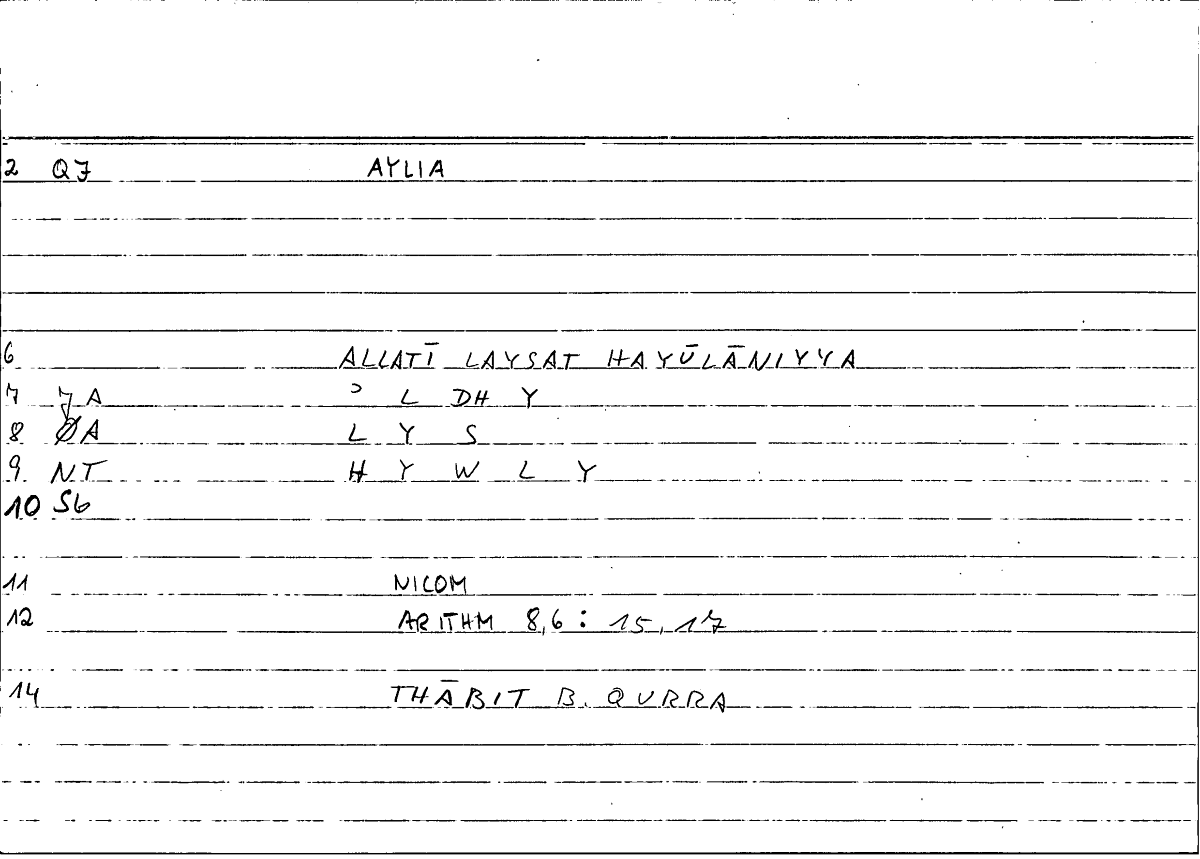 2 Q7 AYLIA
6 ALLATĪ LAYSAT HAYŪLĀNIYYA
7 7A ʾ L DH Y
8 ØA L Y S
9 NT H Y W L Y
10 S6
11 NICOM
12 ARITHM 8,6 : 15, 17
14 THĀBIT B. QURRA